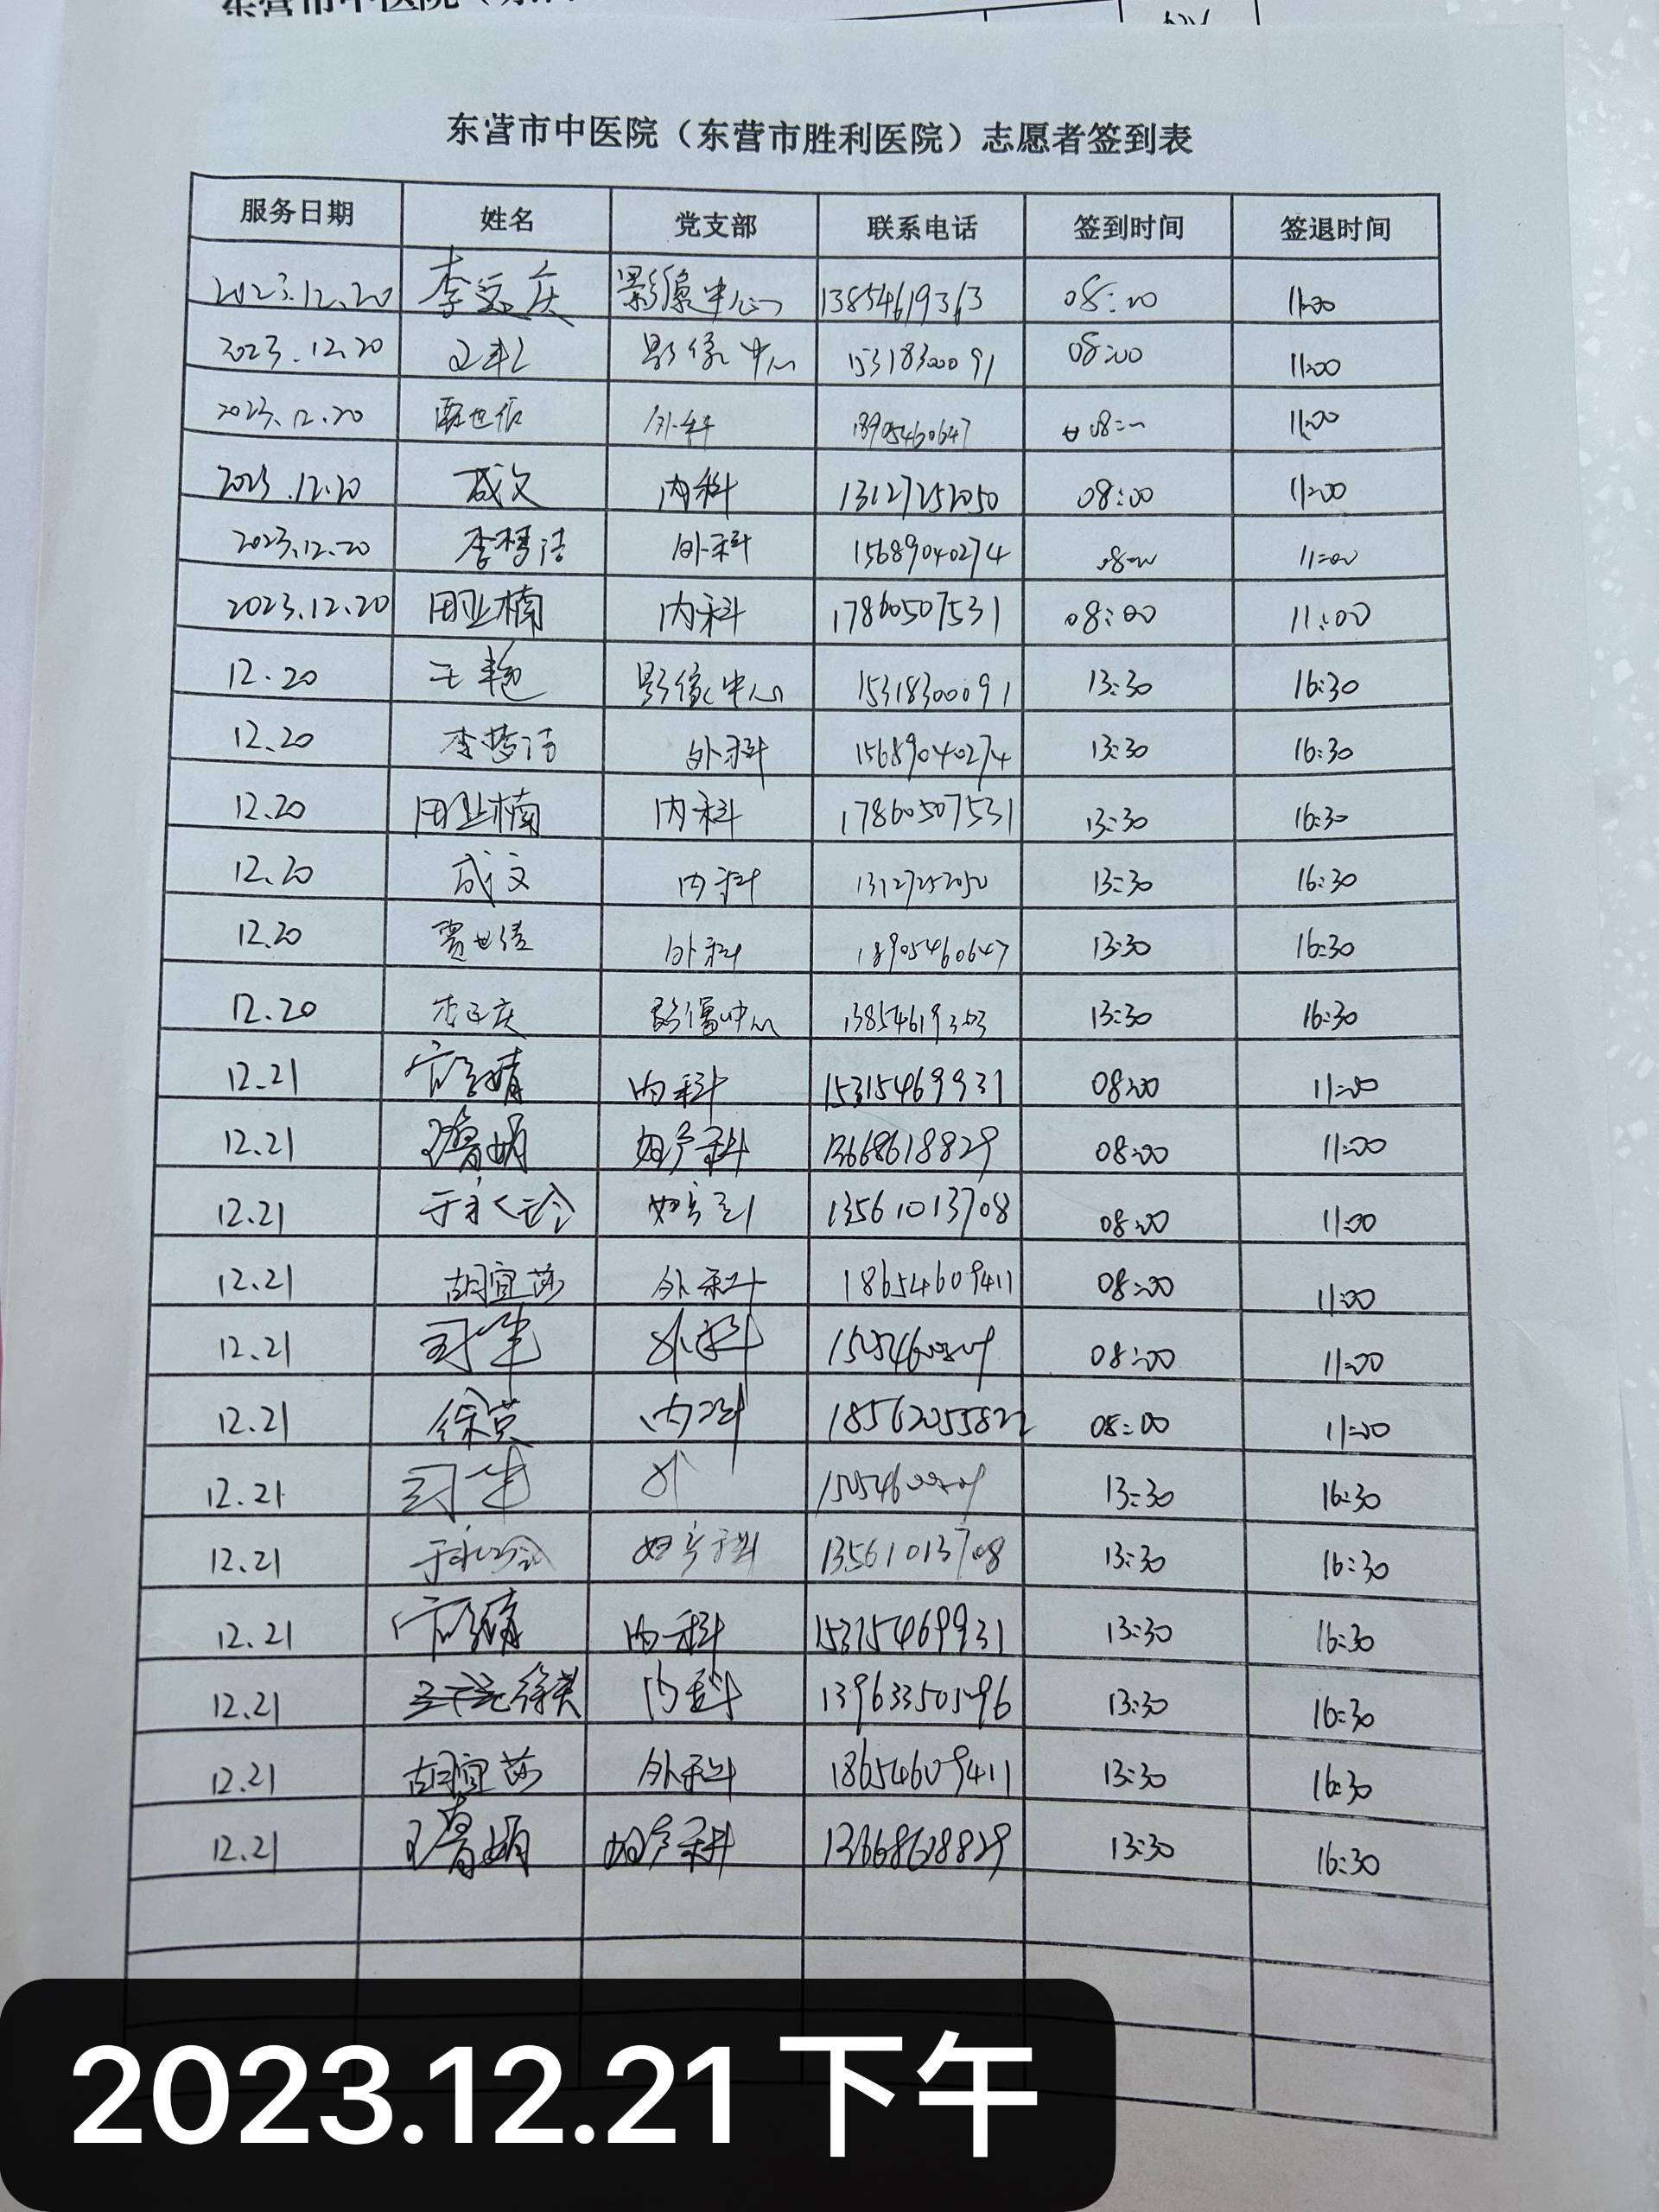 东营市中医院（东营市胜利医院）志愿者签到表
服务日期 姓名 党支部 联系电话 签到时间 签退时间
2023.12.20 李 庆 影像中心 13854619363 08:00 11:00
2023.12.20 影像中心 15318300091 08:00 11:00
2023.12.20 贾世信 外科 18905460647 08:00 11:00
2023.12.20 成文 内科 13127252050 08:00 11:00
2023.12.20 李梦洁 外科 15689040274 08:00 11:00
2023.12.20 田业楠 内科 17860507531 08:00 11:00
12.20 王艳 影像中心 15318300091 13:30 16:30
12.20 李梦洁 外科 15689040274 13:30 16:30
12.20 田业楠 内科 17860507531 13:30 16:30
12.20 成文 内科 13127252050 13:30 16:30
12.20 外科 18905460647 13:30 16:30
12.20 影像中心 13:30 16:30
12.21 内科 15315469931 08:00 11:00
12.21 妇产科 13668618829 08:00 11:00
12.21 于永玲 妇产科 13561013708 08:00 11:00
12.21 胡宜莎 外科 18654609411 08:00 11:00
12.21 外科 08:00 11:00
12.21 徐英 内科 18562055822 08:00 11:00
12.21 外 13:30 16:30
12.21 妇产科 13561013708 13:30 16:30
12.21 内科 15315469931 13:30 16:30
12.21 徐英 内科 13963350596 13:30 16:30
12.21 胡宜莎 外科 18654609411 13:30 16:30
12.21 妇产科 13668618829 13:30 16:30
2023.12.21 下午